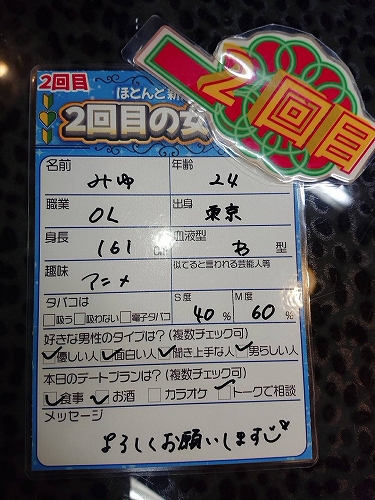 2回目
2回目
ほとんど新
2回目の女
名前
みゆ
年齢
24
職業
OL
出身
東京
身長
161
cm
血液型
型
趣味
アニメ
似てると言われる芸能人等
タバコは
□吸う□吸わない□電子タバコ
S度
40%
M度
60%
好きな男性のタイプは?(複数チェック可)
優しい人 面白い人 聞き上手な人 男らしい人
本日のデートプランは?(複数チェック可)
食事 お酒 □カラオケ トークで相談
メッセージ
よろしくお願いします